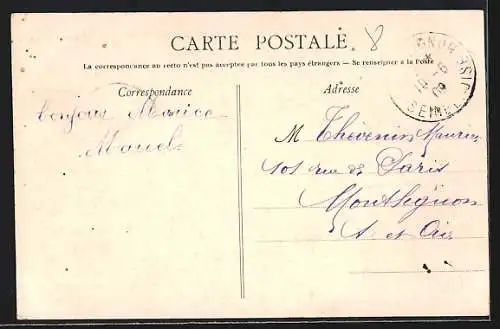 CARTE POSTALE
8
La correspondance au recto n'est pas acceptée par tous les pays étrangers. — Se renseigner à la Poste
Correspondance
Adresse
bonjour Maurice
M Thévenin Maurice
101 rue de Paris
Montlignon
S. et Oise
SEINE